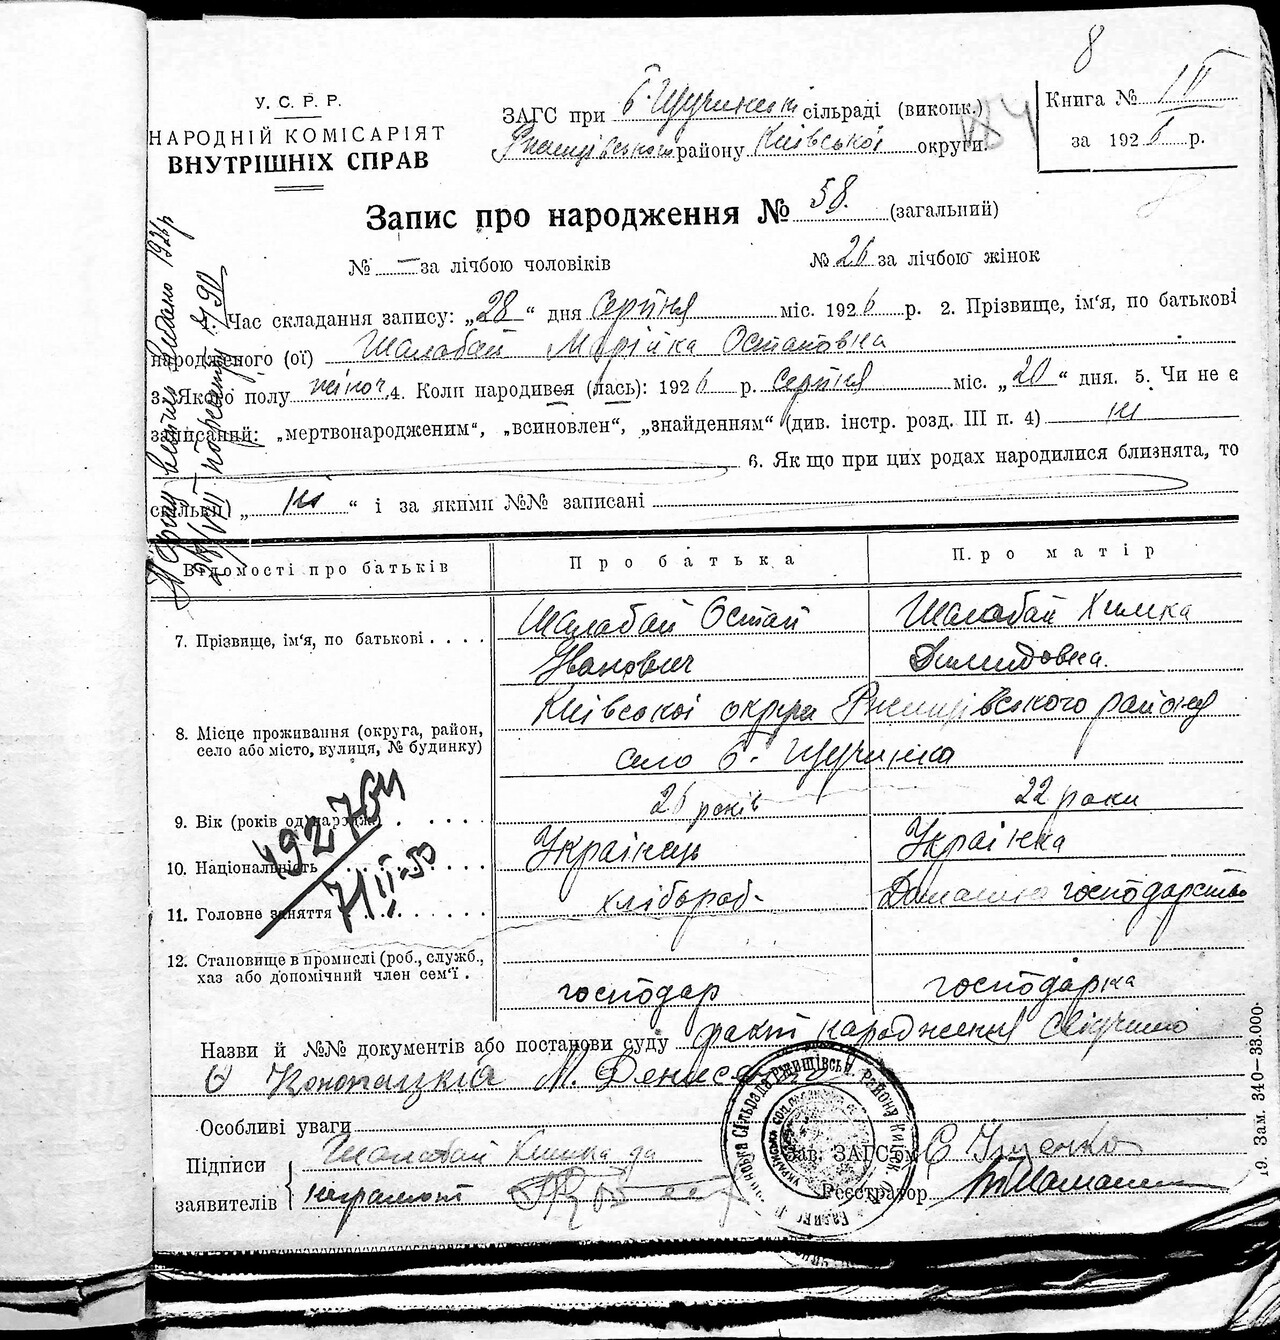 8
У. С. Р. Р.
НАРОДНІЙ КОМІСАРІЯТ
ВНУТРІШНІХ СПРАВ
ЗАГС при Б. Щучинській сільраді (виконк.)
Ржищівського району Київської округи.
Книга № IV
за 1926 р.
Запис про народження № 58. (загальний)
№ — за лічбою чоловіків № 26 за лічбою жінок
1. Час складання запису: „28“ дня серпня міс. 1926 р. 2. Прізвище, ім'я, по батькові
народженого (ої) Шалабай Марійка Остаповна
3. Якого полу жіноч. 4. Коли народився (лась): 1926 р. серпня міс. „20“ дня. 5. Чи не є
записаний: „мертвонародженим“, „всиновлен“, „знайденням“ (див. інстр. розд. III п. 4) ні
6. Як що при цих родах народилися близнята, то
скільки) „ні“ і за якими №№ записані
Відомості про батьків Про батька Про матір
7. Прізвище, ім'я, по батькові Шалабай Остап Шалабай Химка
Іванович Демидовна.
8. Місце проживання (округа, район, Київської округи Ржищівського району
село або місто, вулиця, № будинку) село Б. Щучинка
9. Вік (років од народж.) 26 років 22 роки
10. Національність Українець Українка
11. Головне заняття хлібороб- Домашнє господарство
12. Становище в промислі (роб., служб.,
хаз або допомічний член сем'ї. господар господарка
Назви й №№ документів або постанови суду факт народження свідчимо
М.
Особливі уваги
Підписи Шалабай Химка да
заявителів неграмот
Зав. ЗАГС'ом С Іщенко
Реєстратор
19. Зам. 340—33.000.